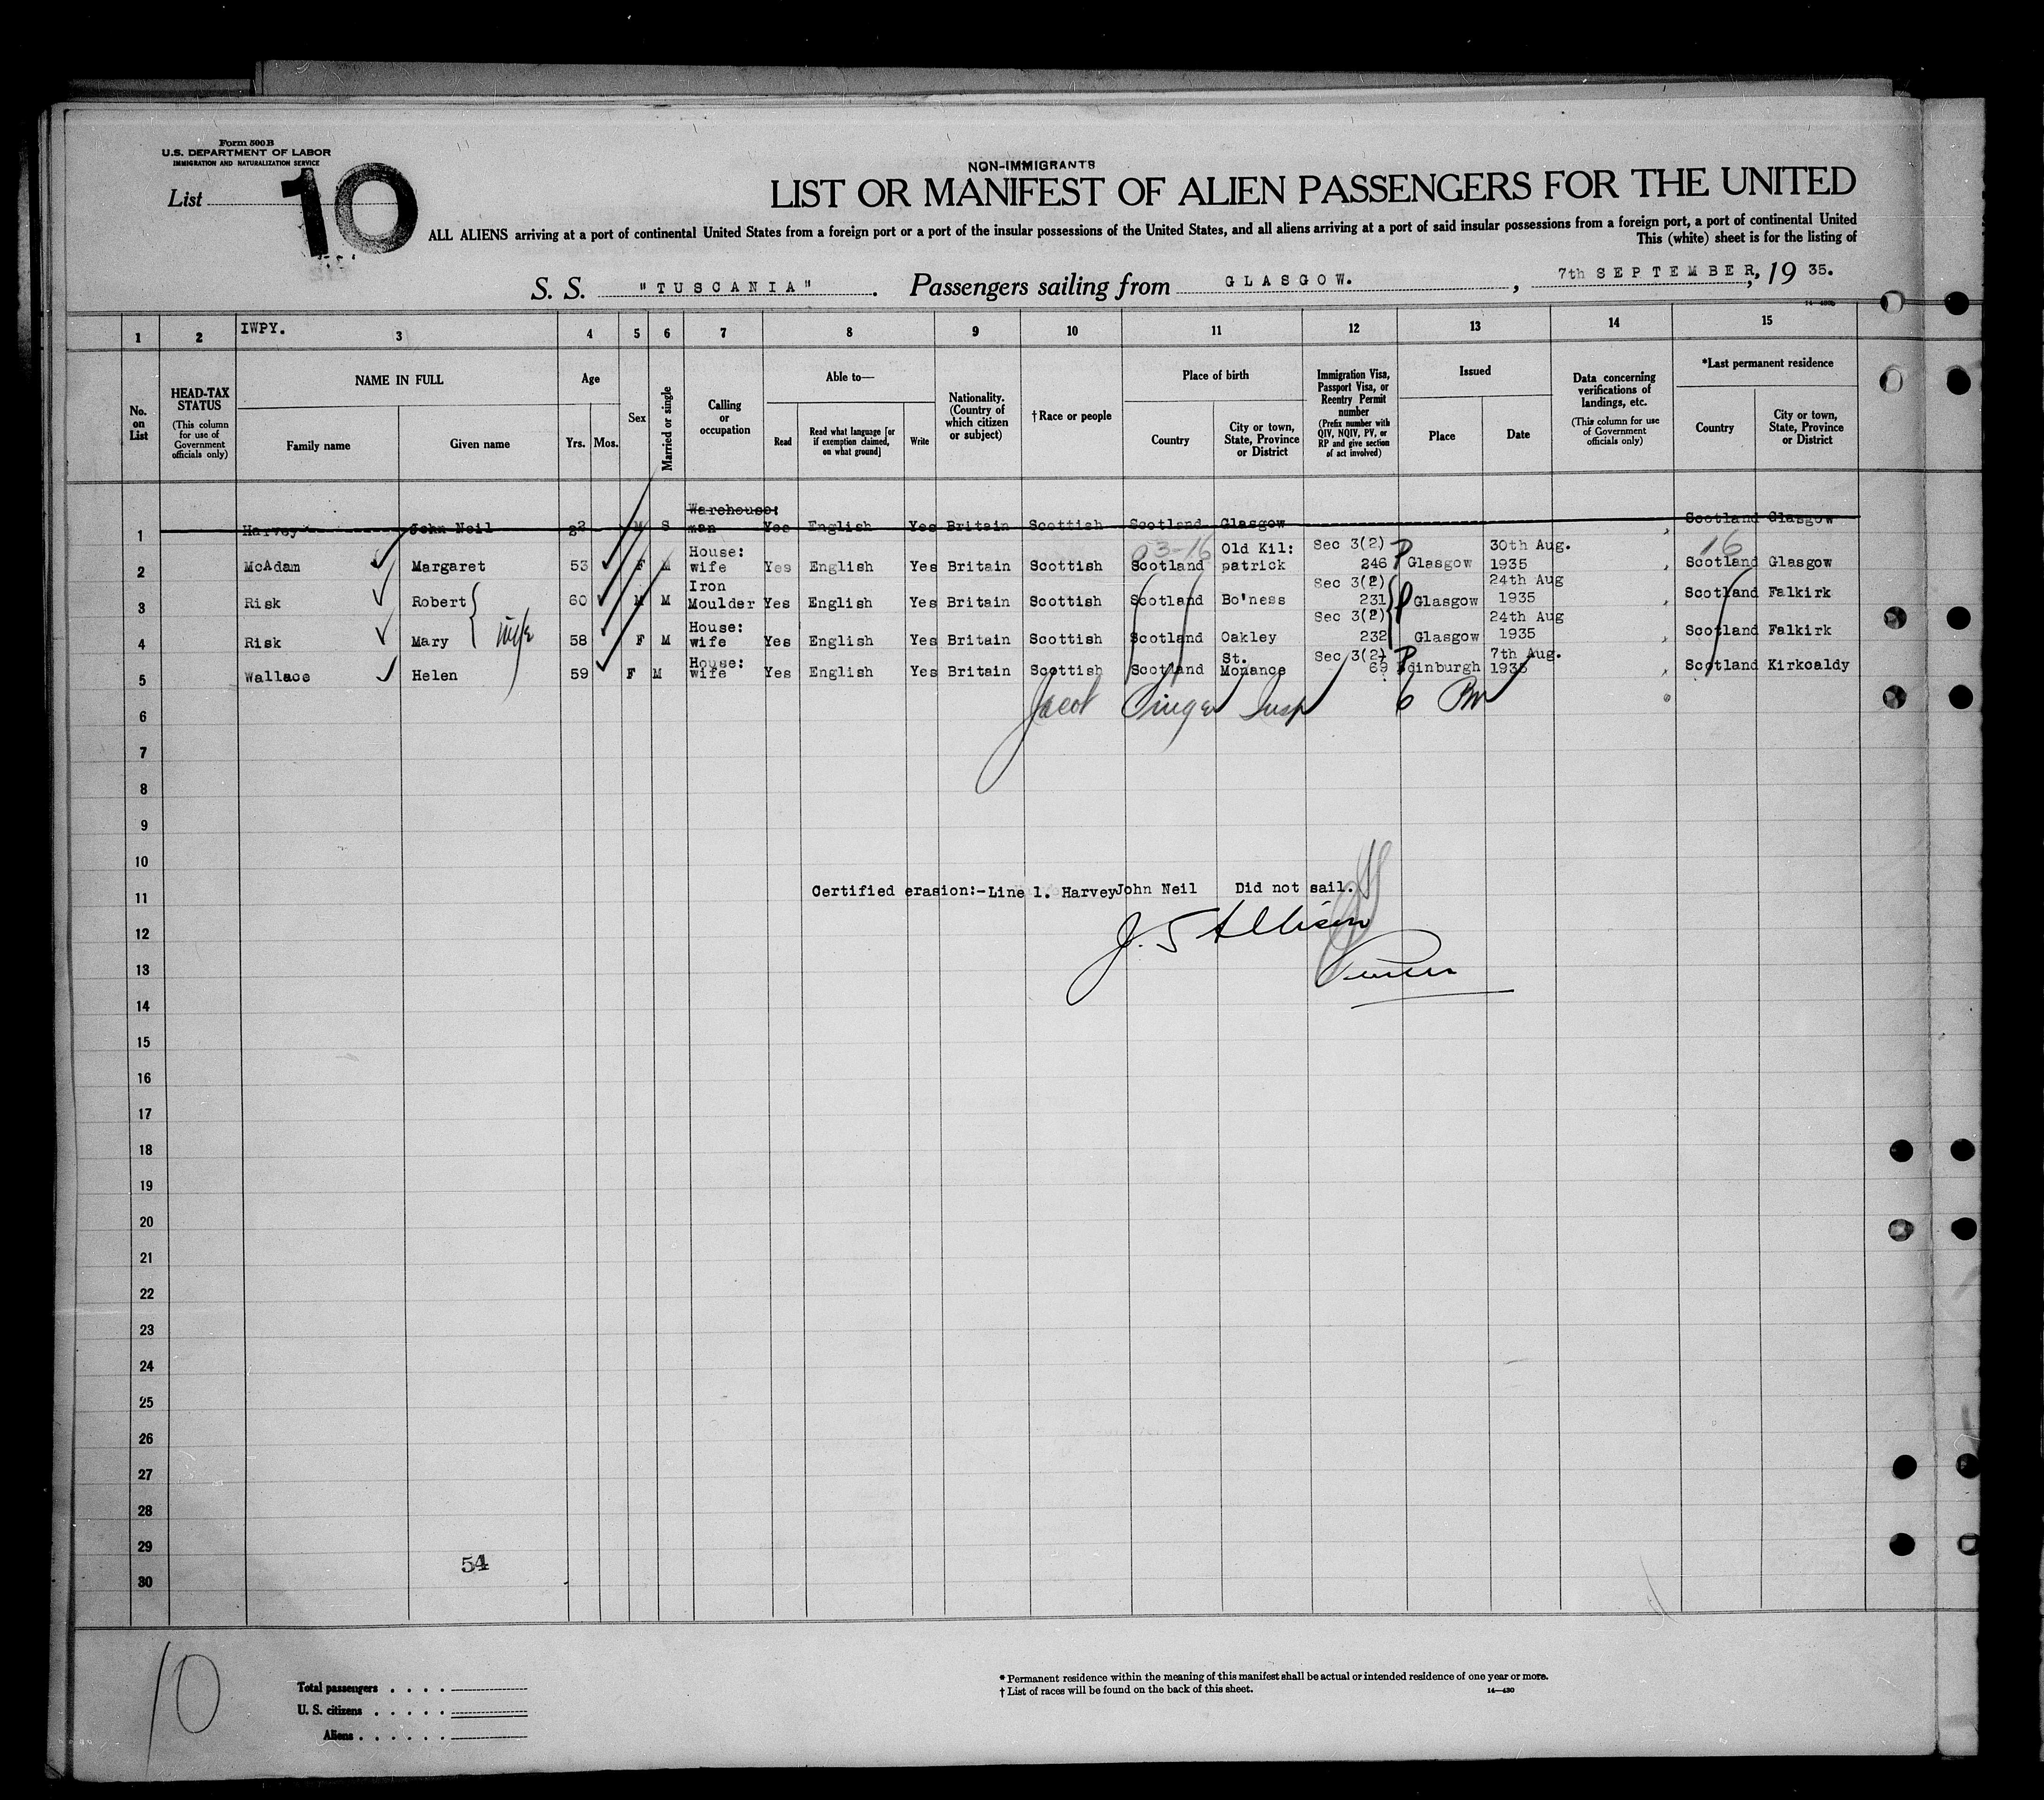 Form 500 B
U.S. DEPARTMENT OF LABOR
IMMIGRATION AND NATURALIZATION SERVICE
List 10
NON-IMMIGRANTS
LIST OR MANIFEST OF ALIEN PASSENGERS FOR THE UNITED
ALL ALIENS arriving at a port of continental United States from a foreign port or a port of the insular possessions of the United States, and all aliens arriving at a port of said insular possessions from a foreign port, a port of continental United
This (white) sheet is for the listing of
S. S. "TUSCANIA". Passengers sailing from GLASGOW., 7th SEPTEMBER, 19 35.
1 2 IWPY. 3 4 5 6 7 8 9 10 11 12 13 14 15
No. on List
HEAD-TAX STATUS (This column for use of Government officials only)
NAME IN FULL Family name Given name
Age Yrs. Mos.
Sex
Married or single
Calling or occupation
Able to— Read Read what language [or if exemption claimed, on what ground] Write
Nationality. (Country of which citizen or subject)
†Race or people
Place of birth Country City or town, State, Province or District
Immigration Visa, Passport Visa, or Reentry Permit number (Prefix number with QIV, NQIV, PV, or RP and give section of act involved)
Issued Place Date
Data concerning verifications of landings, etc. (This column for use of Government officials only)
*Last permanent residence Country City or town, State, Province or District
1 Harvey John Neil 22 M S Warehouse: man Yes English Yes Britain Scottish Scotland Glasgow Scotland Glasgow
03-16 16
2 McAdam Margaret 53 F M House: wife Yes English Yes Britain Scottish Scotland Old Kil: patrick Sec 3(2) 246 P Glasgow 30th Aug. 1935 Scotland Glasgow
3 Risk Robert 60 M M Iron Moulder Yes English Yes Britain Scottish Scotland Bo'ness Sec 3(2) 231 P Glasgow 24th Aug 1935 Scotland Falkirk
4 Risk Mary wife 58 F M House: wife Yes English Yes Britain Scottish Scotland Oakley Sec 3(2) 232 Glasgow 24th Aug 1935 Scotland Falkirk
5 Wallace Helen 59 F M House: wife Yes English Yes Britain Scottish Scotland St. Monance Sec 3(2) 69 P Edinburgh 7th Aug. 1935 Scotland Kirkcaldy
6 Jacob Insp 6
7
8
9
10
11 Certified erasion:-Line 1. Harvey John Neil Did not sail.
12 J. S Allison
13 Purser
14
15
16
17
18
19
20
21
22
23
24
25
26
27
28
29 54
30
10
Total passengers
U. S. citizens
Aliens
* Permanent residence within the meaning of this manifest shall be actual or intended residence of one year or more.
† List of races will be found on the back of this sheet. 14—430